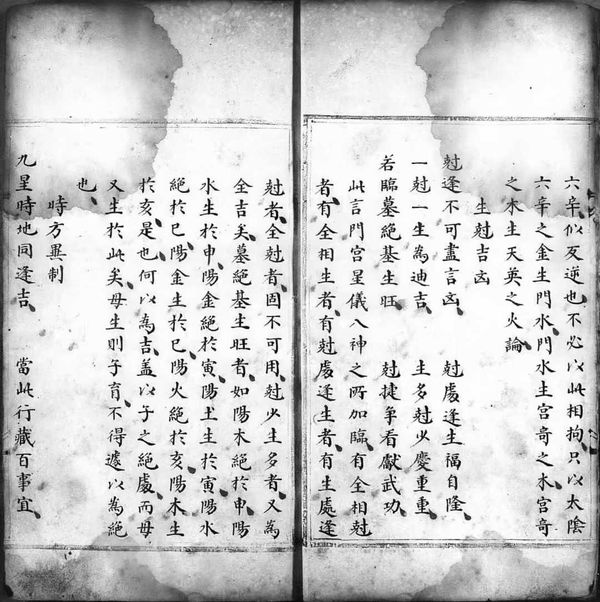 六辛似反逆也不必以此相拘只以太陰
六辛之金生門水門水主宮奇之木宮奇
之木主天英之火論
生尅吉凶
尅逢不可盡言凶 尅處逢生福自隆
一尅一生為迪吉 生多尅少慶重重
若臨墓絕基生旺 尅捷爭看獻武功
此言門宮星儀八神之所加臨有全相尅
者有全相生者有尅處逢生者有生處逢
尅者全尅者固不可用尅少生多者又為
全吉矣墓絕基生旺者如陽木絕於申陽
水生於申陽金絕於寅陽土生於寅陽水
絕於巳陽金生於巳陽火絕於亥陽木生
於亥是也何以為吉蓋以子之絕處而母
又生於此矣母生則子育不得遽以為絕
也
時方異制
九星時地同逢吉 當此行藏百事宜